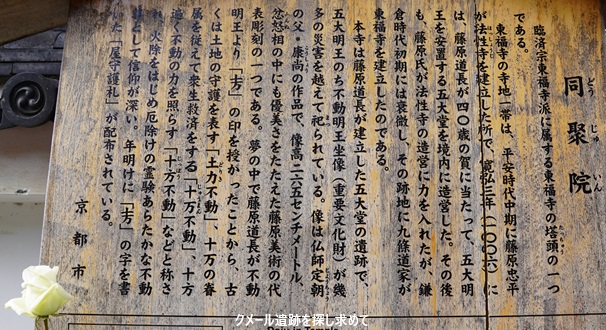 どうじゅいん
同聚院
臨済宗東福寺派に属する東福寺の塔頭の一つ
たっちゅう
である。
東福寺の寺地一帯は、平安時代中期に藤原忠平
が法性寺を建立した所で、寛弘三年（一〇〇六）に
は、藤原道長が四〇歳の賀に当たって、五大明
王を安置する五大堂を境内に造営した。その後
も、藤原氏が法性寺の造営に力を入れたが、鎌
倉時代初期には衰微し、その跡地に九條道家が
東福寺を建立したのである。
本寺は藤原道長が建立した五大堂の遺跡で、
五大明王のうち不動明王坐像（重要文化財）が幾
多の災害を越えて祀られている。像は仏師定朝
の父・康尚の作品で、像高二六五センチメートル、
忿怒相の中にも優美さをたたえた藤原美術の代
表彫刻の一つである。夢の中で藤原道長が不動
明王より「土方」の印を授かったことから、古
くは土地の守護を表す「土力不動」、十万の眷
属を従えて衆生救済をする「十万不動」、十方
遍く不動の力を照らす「十方不動」などと称さ
れ、火除をはじめ厄除けの霊験あらたかな不動
として信仰が深い。年明けに「土方」の字を書
いた「屋守護札」が配布されている。
京都市
クメール遺跡を探し求めて